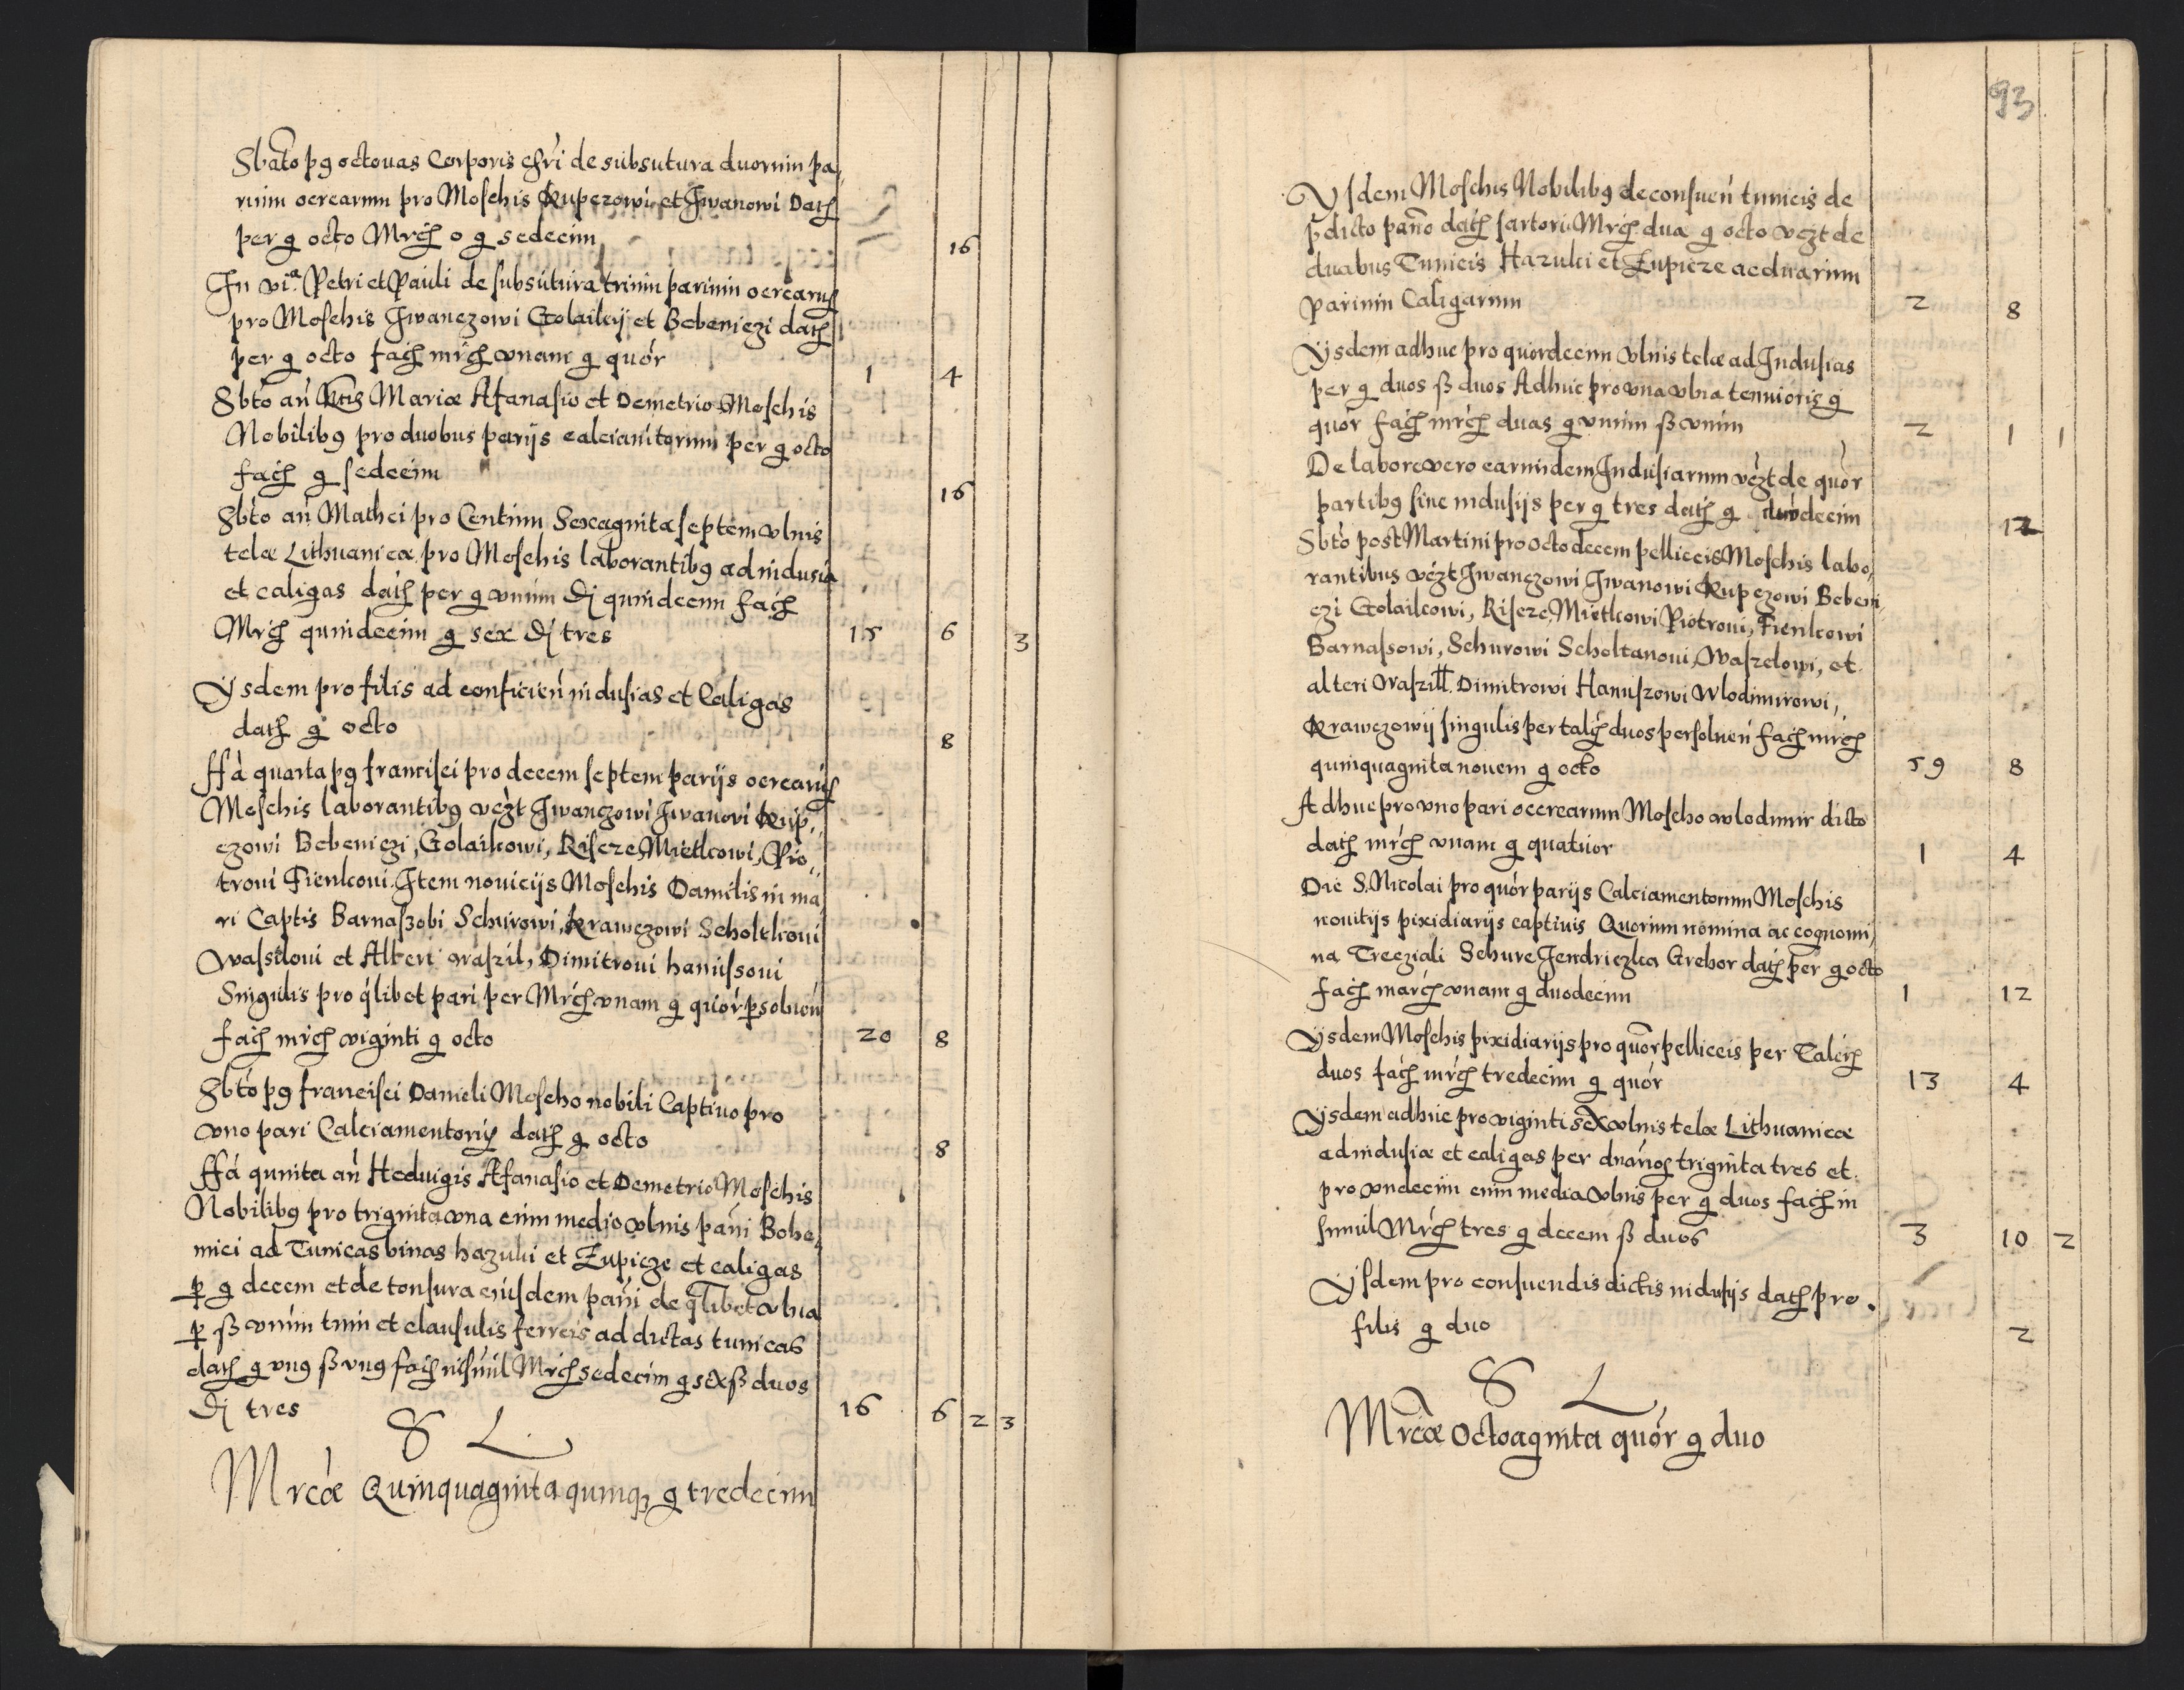 Sbato pg octouas Corporis chri de subsutura duorum pa,
rium ocrearum pro Moschis Kupczowi et Jwanowi Dath
per g octo Mrch 0 g sedecim 16
Jn via Petri et Pauli de subsutura trium parium ocrearum
pro Moschis Jwanczowi Golaikij et Bebeniczi dath
per g octo fach mrch vnam g quor 1 4
Sbto an Mariæ Afanasio et Demetrio Moschis
Nobilibg pro duobus parijs calciamtorum per g octo
fach g sedecim 16
Sbto an Mathei pro Centum Sexaginta septem vlnis
telæ Lithuanicæ pro Moschis laborantibg ad indusia
et caligas dath per g vnum Dj quindecim fach
Mrch quindecim g sex Dj tres 15 6 3
ijsdem pro filis ad conficien indusias et Caligas
dath g octo 8
ffa quarta pg francisci pro decem septem parijs ocrearum
Moschis laborantibg vczt Jwanczowi Jwanovi Kup,
czowi Bebeniczi, Golaikowi, Risczc, Mietkowi, Pio,
troui Fienkoui Jtem nouicijs Moschis Damilis in ma
ri Captis Barnaszobi Schurowi, Krawczowi Scholtkoui
Wassiloui et Alteri Waszil, Dimitroui hanussoui
Singulis pro qlibet pari per Mrch vnam g quor psoluen
fach mrch viginti g octo 20 8
Sbto pg francisci Danieli Moscho nobili Captiuo pro
vno pari Calciamentorum dath g octo 8
ffa quinta an Heduigis Afanasio et Demetrio Moschis
Nobilibg pro triginta vna cum medio vlnis pani Bohe,
mici ad Tunicas binas hazuki et Zupicze et caligas
p g decem et de tonsura eiusdem pani de qlibet vlna
p ß vnum tum et clausulis ferreis ad dictas tunicas
dath g vng ß vng fach insimul Mrch sedecim g sex ß duos
Dj tres 16 6 2 3
S L
Mrcæ Quinquaginta quinqz g tredecim
93
Ysdem Moschis Nobilibg de consuen tunicis de
pdicto pano dath sartori Mrch dua g octo vczt de
duabus Tunicis Hazuki et Zupicze ac duarum
Parium Caligarum 2 8
Ysdem adhuc pro quordecim vlnis telæ ad Indusias
per g duos ß duos Adhuc pro vna vlna tenuioris g
quor fach mrch duas g vnum ß vnum 2 1 1
De labore vero earundem Indusiarum vczt de quor
partibg siue indusijs per g tres dath g duodecim 12
Sbto post Martini pro octodecem pelliceis Moschis labo,
rantibus vczt Jwanczowi Jwanowi Kupczowi Bebeni,
czi Golaikowi, Risczc, Mietkowi Piotroui, Fienkowi
Barnassowi, Schurowi Scholtanoui, Waszelowi, et
alteri Waszill. Dimitrowi Hanuszowi Wlodimirowi,
Krawczowij singulis per talch duos persoluen fach mrch
quinquaginta nouem g octo 59 8
Adhuc pro vno pari ocerearum Moscho wlodimir dicto
dath mrch vnam g quatuor 1 4
Die S. Nicolai pro quor parijs Calciamentorum Moschis
nouitijs pixidiarijs captiuis Quorum nomina ac cognomi,
na Trecziali Schure Jendriczka Grehor dath per g octo
fach march vnam g duodecim 1 12
Ysdem Moschis pixidiarijs pro quor pelliceis per Talch
duos fach mrch tredecim g quor 13 4
Ysdem adhuc pro viginti sex vlnis telæ Lithuanicæ
ad indusiæ et caligas per dnarios triginta tres et
pro vndecim cum media vlnis per g duos fach in
simul Mrch tres g decem ß duos 3 10 2
Ysdem pro consuendis dictis indusijs dath pro
filis g duo 2
S L
Mrcæ Octoaginta quor g duo